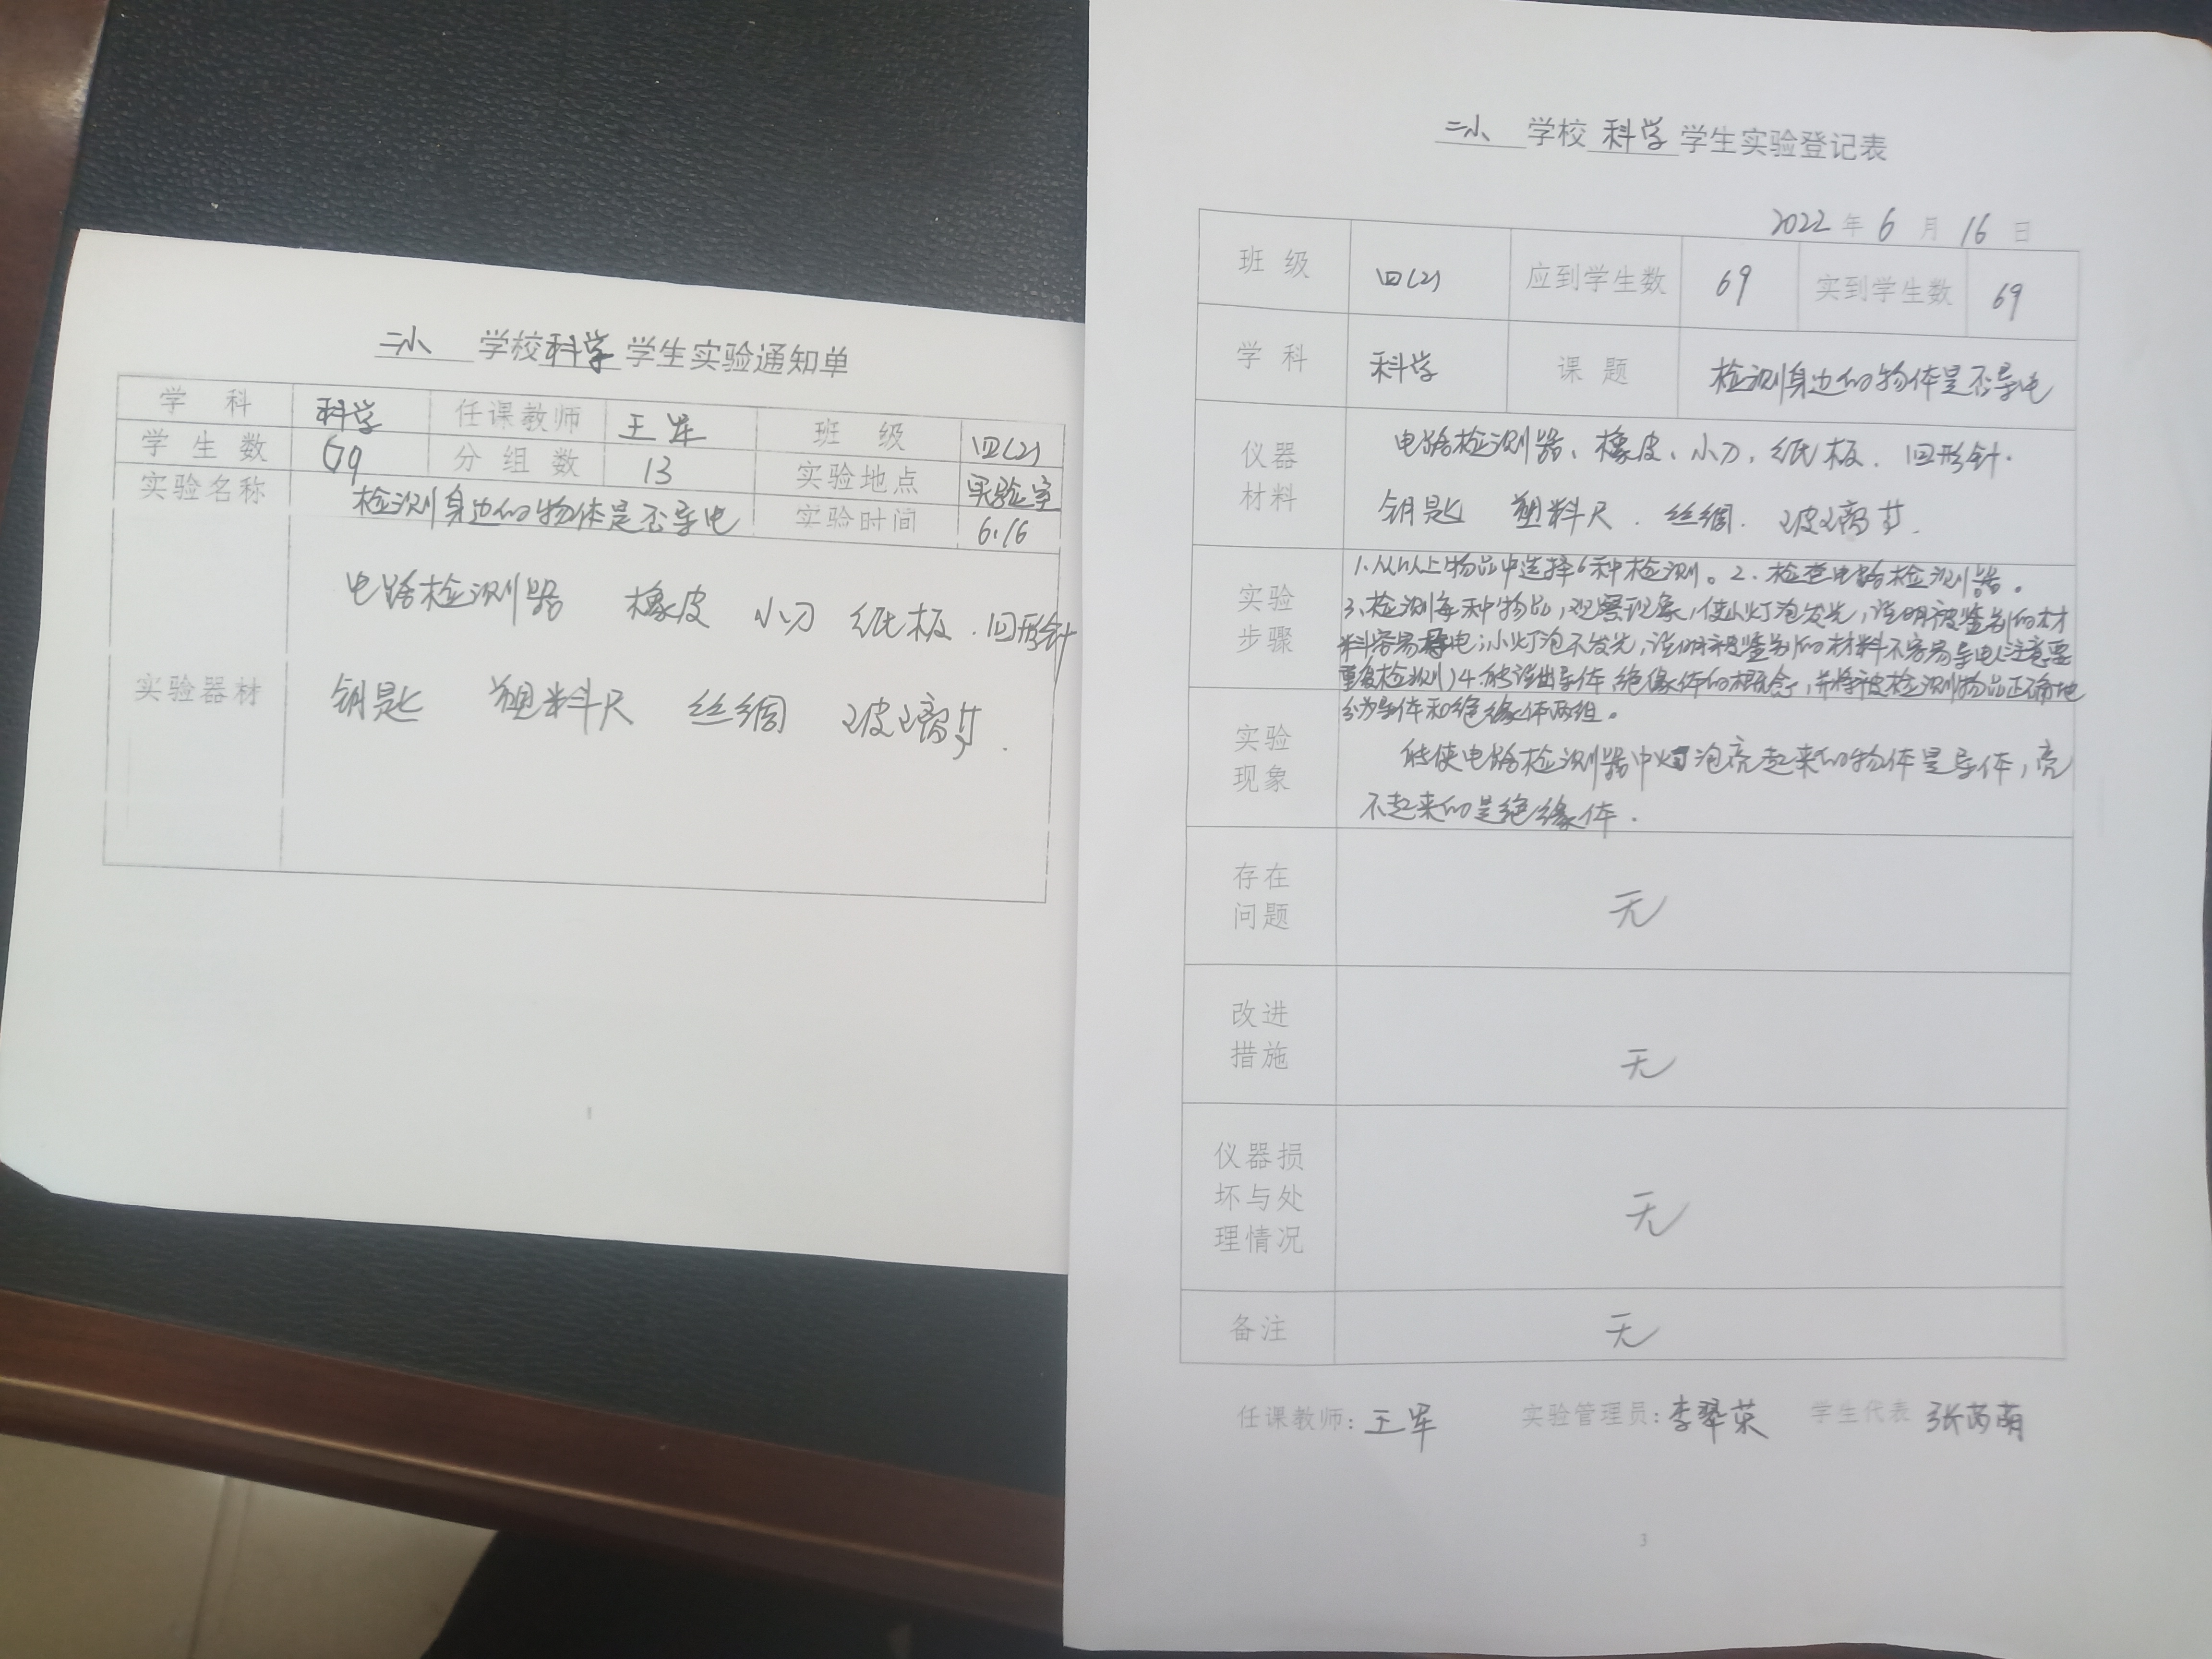 二小 学校 科学 学生实验通知单
学科 科学 任课教师 王军 班级 四(2)
学生数 69 分组数 13 实验地点 实验室
实验名称 检测身边的物体是否导电 实验时间 6.16
实验器材
电路检测器 橡皮 小刀 纸板 . 回形针
钥匙 塑料尺 丝绸 玻璃片 .
二小 学校 科学 学生实验登记表
2022 年 6 月 16 日
班级 四(2) 应到学生数 69 实到学生数 69
学科 科学 课题 检测身边的物体是否导电
仪器材料
电路检测器、橡皮、小刀, 纸板. 回形针.
钥匙 塑料尺. 丝绸. 玻璃片.
实验步骤
1.从以上物品中选择6种检测。2.检查电路检测器。
3.检测每种物品,观察现象,使小灯泡发光,说明被鉴别的材
料容易导电;小灯泡不发光,说明被鉴别的材料不容易导电(注意要
重复检测)4.能说出导体,绝缘体的概念,并将被检测物品正确地
分为导体和绝缘体两组。
实验现象
能使电路检测器中灯泡亮起来的物体是导体,亮
不起来的是绝缘体.
存在问题 无
改进措施 无
仪器损坏与处理情况 无
备注 无
任课教师: 王军 实验管理员: 李翠英 学生代表 张芮萌
3